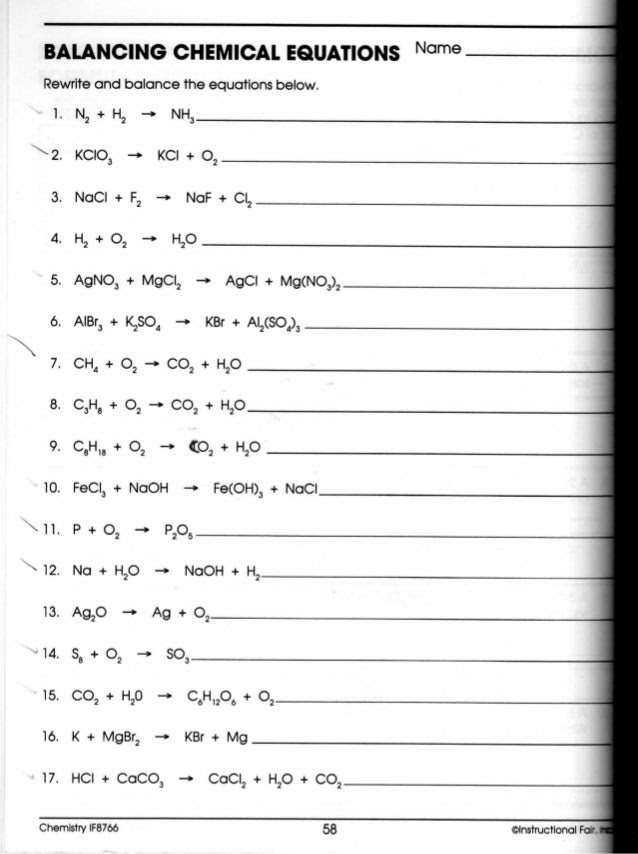 BALANCING CHEMICAL EQUATIONS Name
Rewrite and balance the equations below.
1. N₂ + H₂ → NH₃
2. KClO₃ → KCl + O₂
3. NaCl + F₂ → NaF + Cl₂
4. H₂ + O₂ → H₂O
5. AgNO₃ + MgCl₂ → AgCl + Mg(NO₃)₂
6. AlBr₃ + K₂SO₄ → KBr + Al₂(SO₄)₃
7. CH₄ + O₂ → CO₂ + H₂O
8. C₃H₈ + O₂ → CO₂ + H₂O
9. C₈H₁₈ + O₂ → CO₂ + H₂O
10. FeCl₃ + NaOH → Fe(OH)₃ + NaCl
11. P + O₂ → P₂O₅
12. Na + H₂O → NaOH + H₂
13. Ag₂O → Ag + O₂
14. S₈ + O₂ → SO₃
15. CO₂ + H₂0 → C₆H₁₂O₆ + O₂
16. K + MgBr₂ → KBr + Mg
17. HCl + CaCO₃ → CaCl₂ + H₂O + CO₂
Chemistry IF8766 58 ©Instructional Fair,